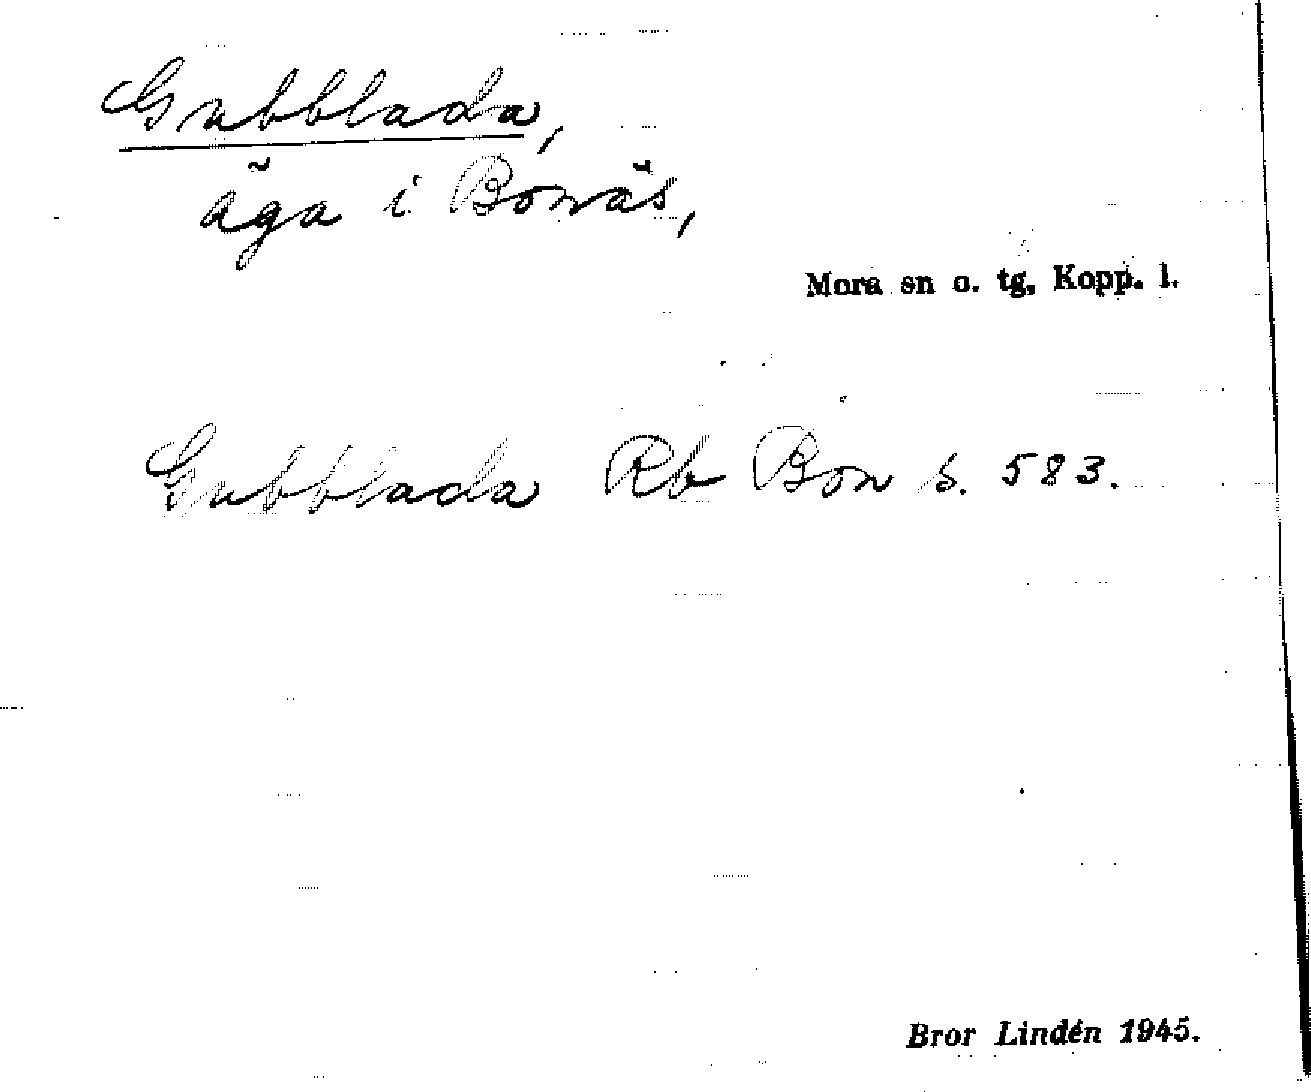 Gubblada,
äga i Bonäs,
Mora sn o. tg, Kopp. l.
Gubblada Rb Bon s. 583.
Bror Lindén 1945.